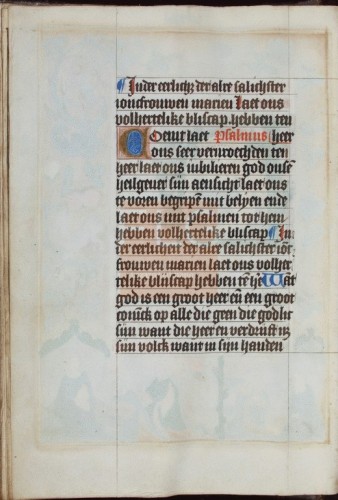 In der eerlich der alre salichster
ioncfrouwen marien Laet ons
volhertelike bliscap hebben ten
Coemt laet Psalmus heer
ons seer vervroechden ten
heer laet ons iubilieren god onsē
heilgever sijn aensicht laet ons
te voren begripē mit belyen ende
laet ons mit psalmen tot hem
hebben volhertelike bliscap In
der eerlichen der alre salichster iōc
frouwen marien laet ons volher
telike blijscap hebben tē he Wāt
god is een groot heer eñ een groot
coninck op alle die
sijn want die heer en verdrijft
sijn volck want in sijn handen